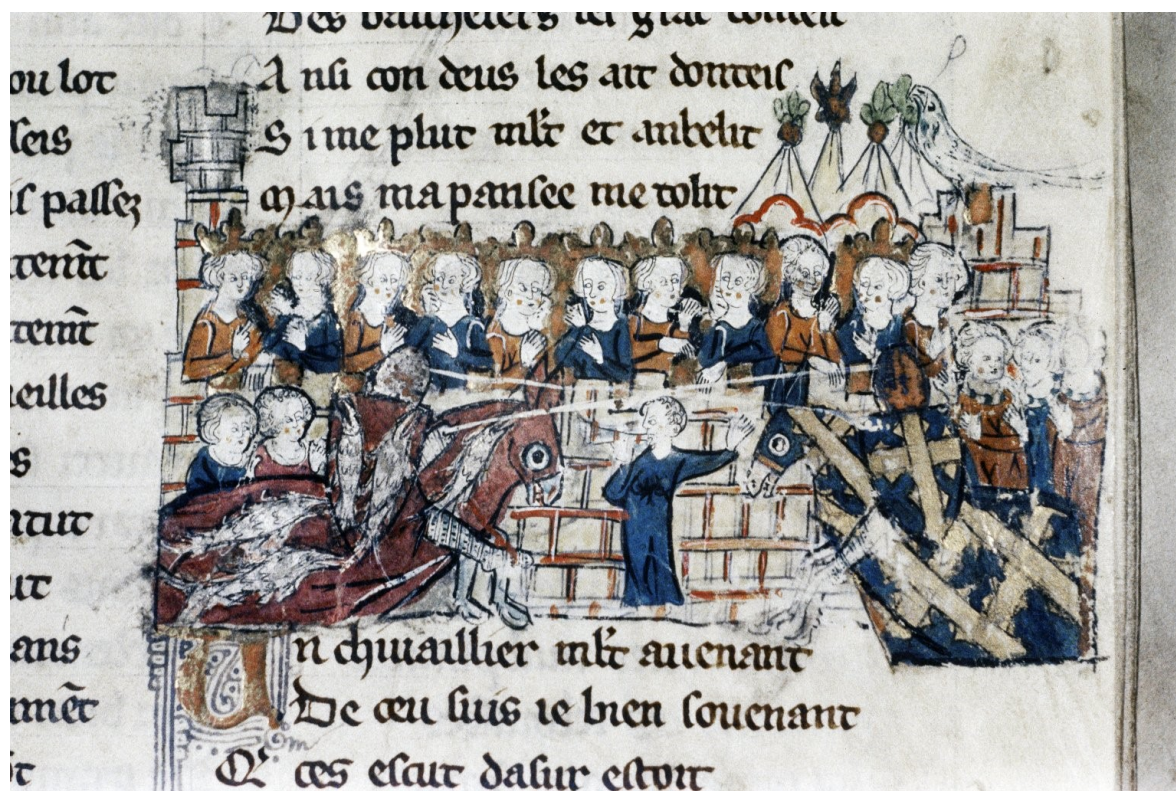 ou lot
sseis
is passez
tenīt
tenīt
eilles
s
ut
ans
mēt
Des baichelers
A nsi con deus les ait donteis
S i me plut ml't et anbelit
Mais ma pansee me tolit
Un chiuaillier ml't auenant
De ceu suis ie bien souenant
ces escut dasur estoit